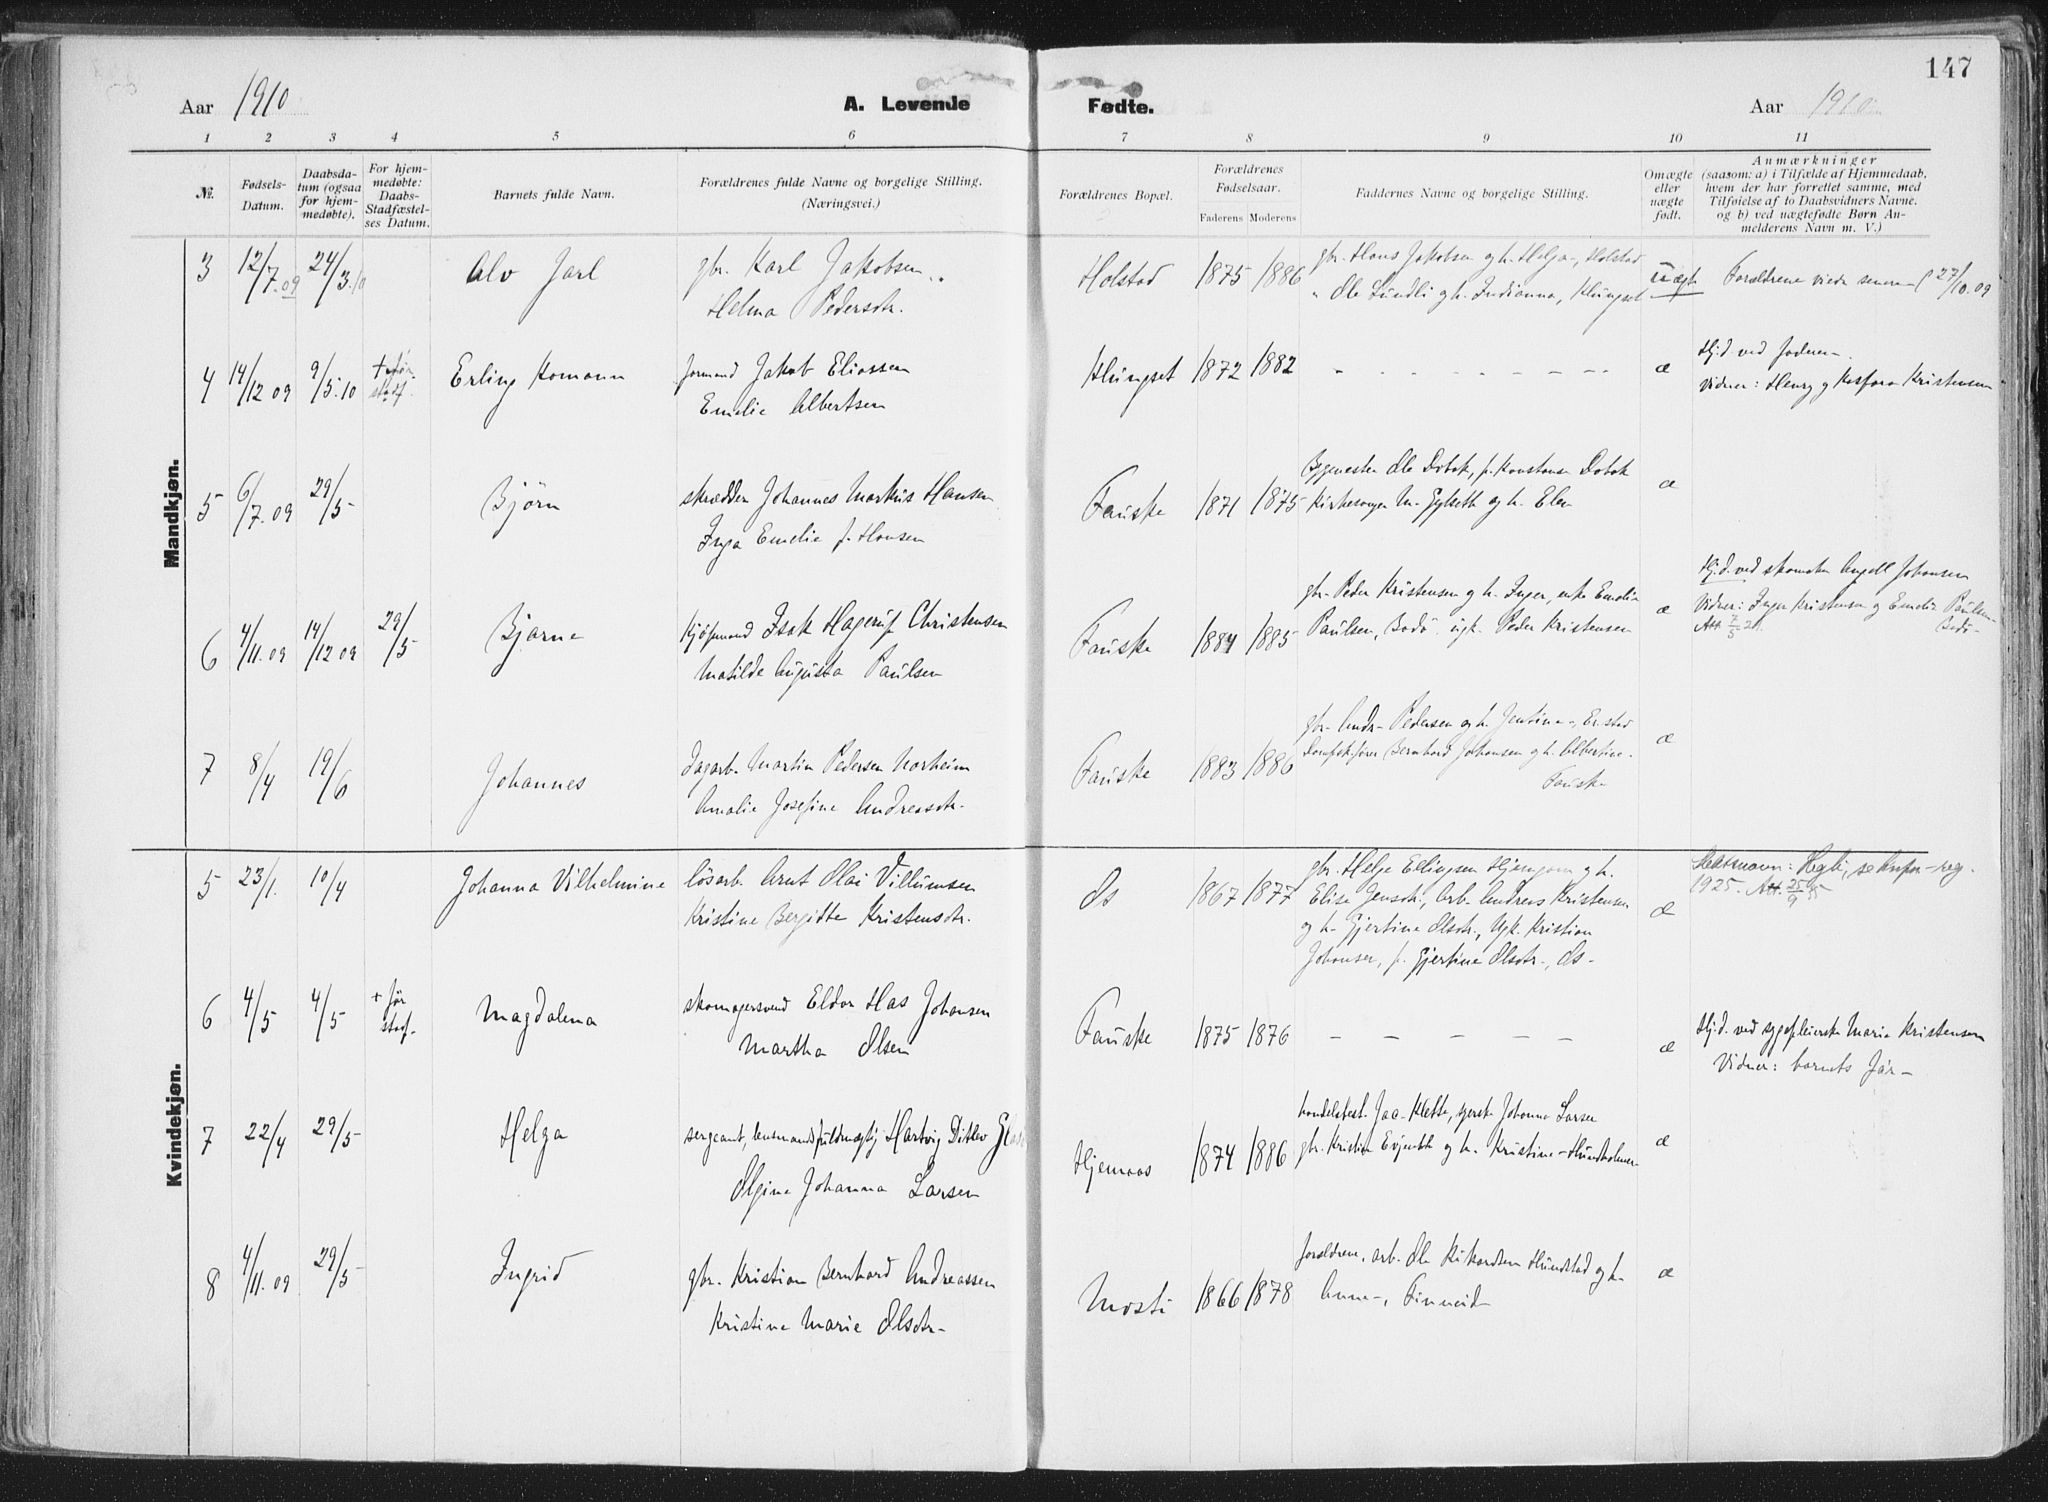 147
Aar 1910 A. Levende Fødte. Aar 1910
1 2 3 4 5 6 7 8 9 10 11
№. Fødsels-Datum. Daabsdatum (ogsaa for hjemmedøbte). For hjemmedøbte: Daabs-Stadfæstelses Datum. Barnets fulde Navn. Forældrenes fulde Navne og borgelige Stilling. (Næringsvei.) Forældrenes Bopæl. Forældrenes Fødselsaar. Faderens Moderens Faddernes Navne og borgelige Stilling. Omægte eller nægte født. Anmærkninger (saasom: a) i Tilfælde af Hjemmedaab, hvem der har forrettet samme, med Tilføielse af to Daabsvidners Navne. og b) ved nægtefødte Børn Anmelderens Navn m. V.)
Mandkjøn.
3 12/7.09 24/3.10 Alv Jarl gbr. Karl Jakobsen Holstad 1875 1886 gbr. Hans Jakobsen og h. Helga, Holstad uægte Forældrene viede senere (27/10.09
Helma Pedersdtr. " Ole Lundli og h. Indianna, Klungset
4 14/12 09 9/5.10 + før stadf. Erling Romann formand Jakob Eliassen Klungset 1872 1882 - - - - - - - - æ Hj.d. ved faderen.
Emelie Albertsen Vidner: Henry og Kasfara Kristensen
5 6/7.09 29/5 Bjørn skrædder Johannes Markus Hansen Fauske 1871 1875 Bygmester Ole Dotok, f. Konstanse Dotok æ
Inga Emelie f. Hansen Kirkesanger M. Gylseth og h. Elen
6 4/11.09 14/12 09 29/5 Bjarne Kjøpmand Isak Hagerup Christensen Fauske 1884 1885 gbr. Peder Kristensen og h. Inger, enke Emelie æ Hj.d. ved skomaker Angell Johansen
Matilde Augusta Paulsen Paulsen, Bodø, ugk. Peder Kristensen Vidner: Inger Kristensen og Emelie Paulsen
Att. 7/5 21. Bodø
7 8/4 19/6 Johannes Dagarb. Martin Pedersen Norheim Fauske 1883 1886 gbr. Andr. Pedersen og h. Jentine, Erstad æ
Amalie Josefine Andreasdtr. Bernhard Johansen og h. Albertine.
Fauske
Kvindekjøn.
5 23/1. 10/4 Johanna Vilhelmine løsarb. Arnt Olai Villumsen Os 1867 1877 gbr. Helge Ellingsen og h. æ
Kristine Bergitte Kristensdtr. Elise Jensdtr., arb. Andreas Kristensen 1925. Att. 25/9 35
og h. Gjertine Olsdtr., Ugk. Kristian
Johansen, p. Gjertine Olsdtr., Os
6 4/5 4/5 + før stadf. Magdalena skomagersvend Eldor Has Johansen Fauske 1875 1876 - - - - - æ Hj.d. ved sygepleierske Marie Kristensen
Martha Olsen Vidner: barnets før.
7 22/4 29/5 Helga sergeant, lensmandsfuldmægtig Hartvig Ditlev Hjemaas 1874 1886 handelsbest. Jaa. Klette, Johanna Larsen æ
Olgine Johanna Larsen gbr. Kristian Evjenth og h. Kristine, Hundholmen
8 4/11.09 29/5 Ingrid gbr. Kristian Bernhard Andreassen Mosti 1866 1878 forældrene, arb. Ole Rikardsen Hundstad og h. æ
Kristine Marie Olsdtr. Anna, Finneid